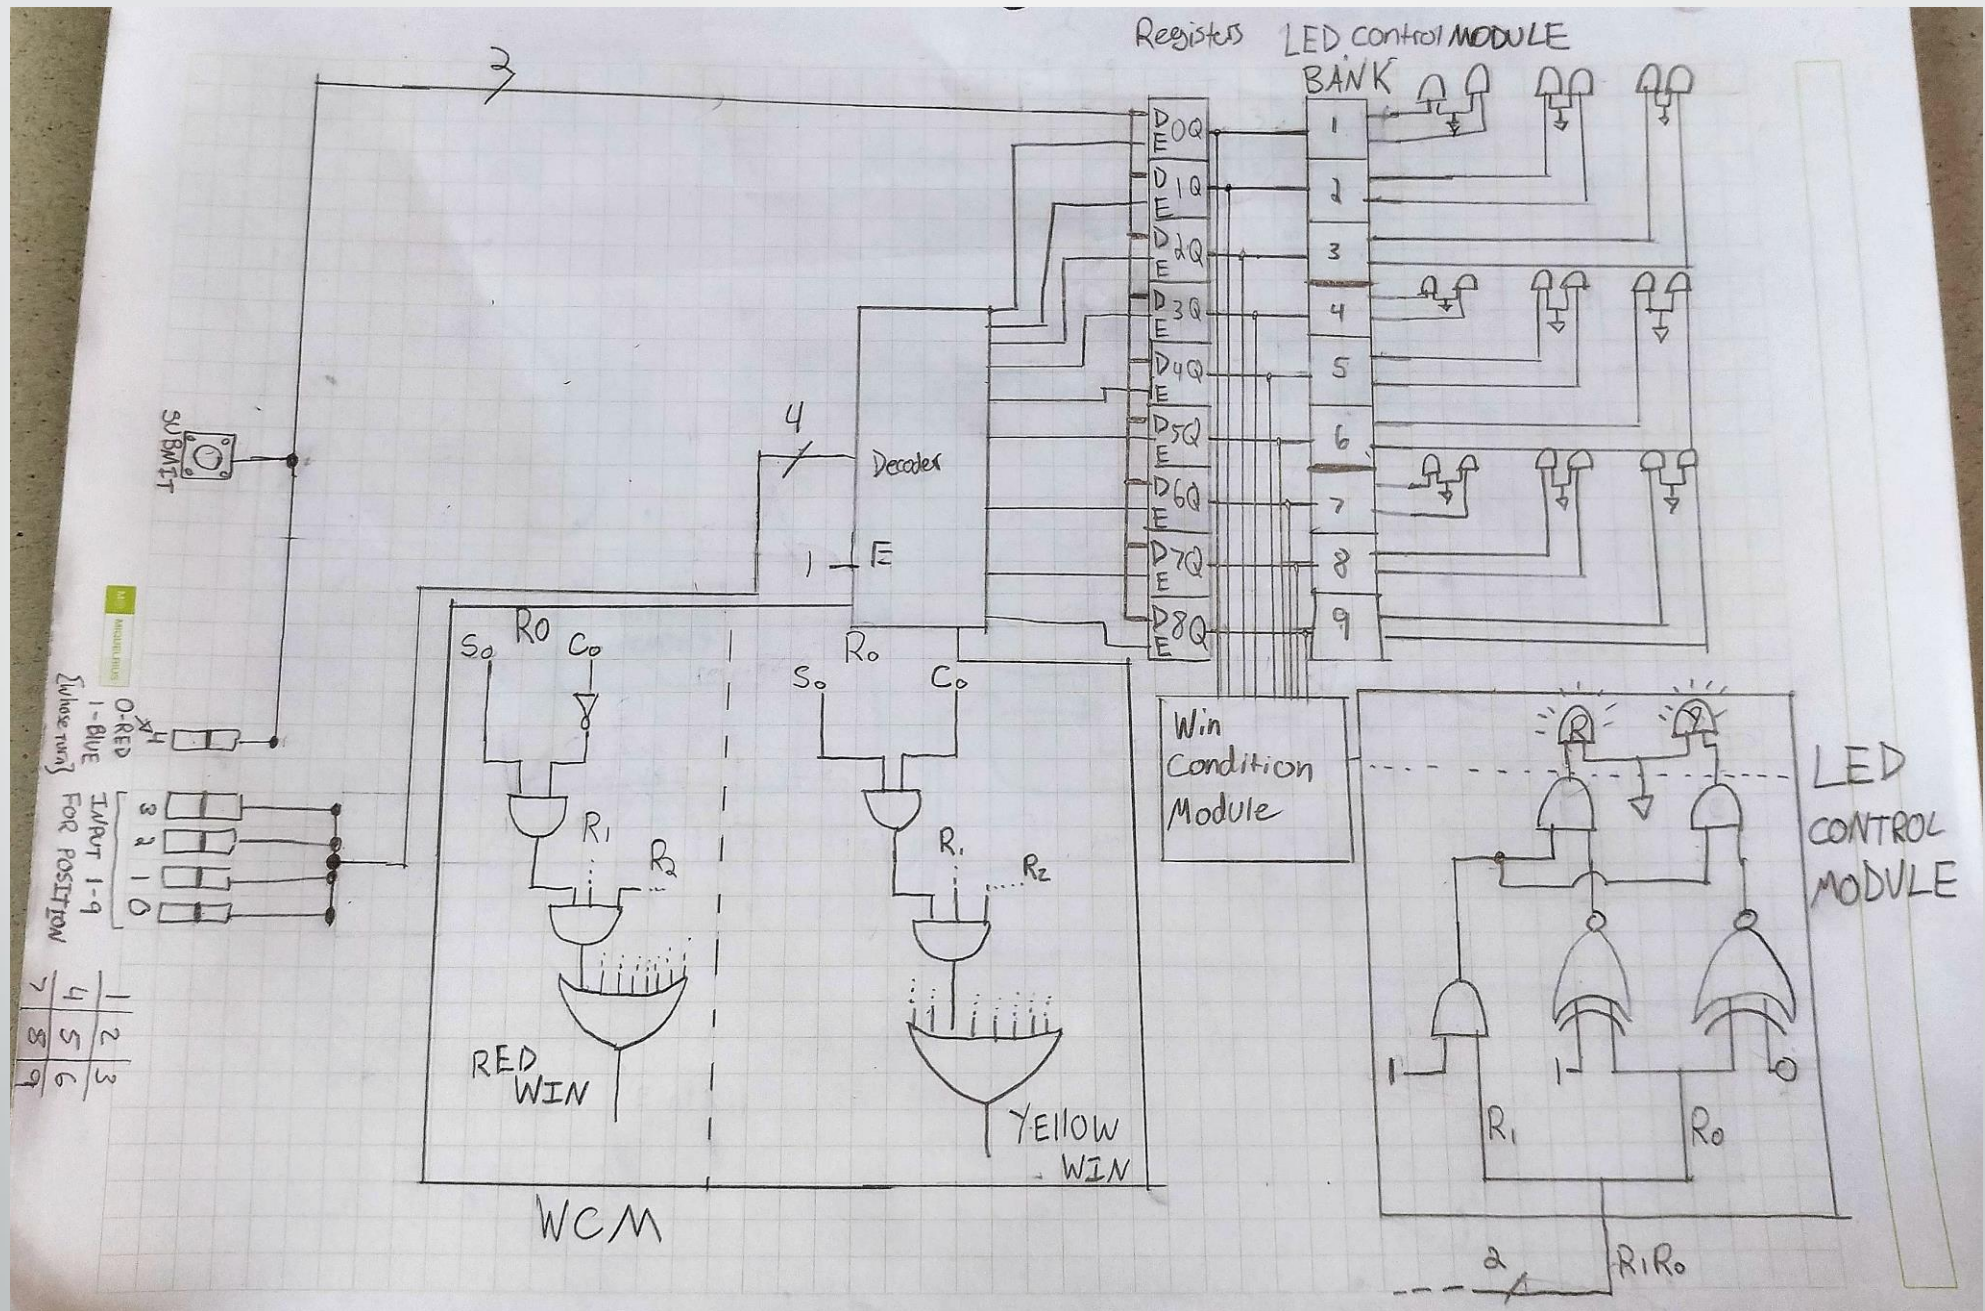 Registers LED control MODULE
BANK
2
D 0Q
E
D 1Q
E
D 2Q
E
D 3Q
E
D 4Q
E
D 5Q
E
D 6Q
E
D 7Q
E
D 8Q
E
1
2
3
4
5
6
7
8
9
SUBMIT
4
Decoder
1
E
MIQUELRIUS
4
0-RED
1-BLUE
{Whose turn}
3
2
1
0
INPUT 1-9
FOR POSITION
1 2 3
4 5 6
7 8 9
R0
S0 C0
R1
R2
RED
WIN
R0
S0 C0
R1
R2
YEllOW
WIN
WCM
Win
Condition
Module
R Y
LED
CONTROL
MODULE
1
1
0
R1
R0
2
R1R0